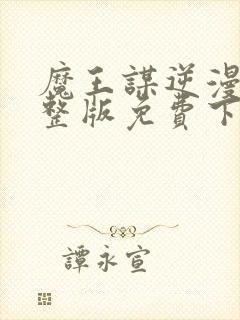 魔王謀逆漫
整版免費下
譚永宣